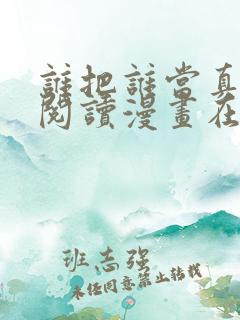 誰把誰當真
閱讀漫畫在
班志强
未经同意禁止转载